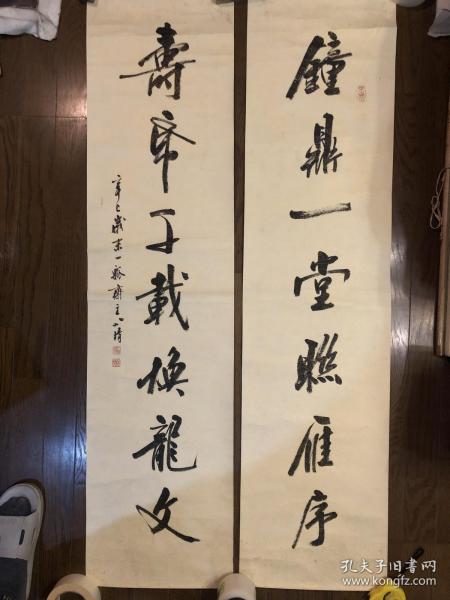 鐘鼎一堂聯雁序
壽千載煥龍文
辛巳歲末一齋主
孔夫子旧书网
www.kongfz.com